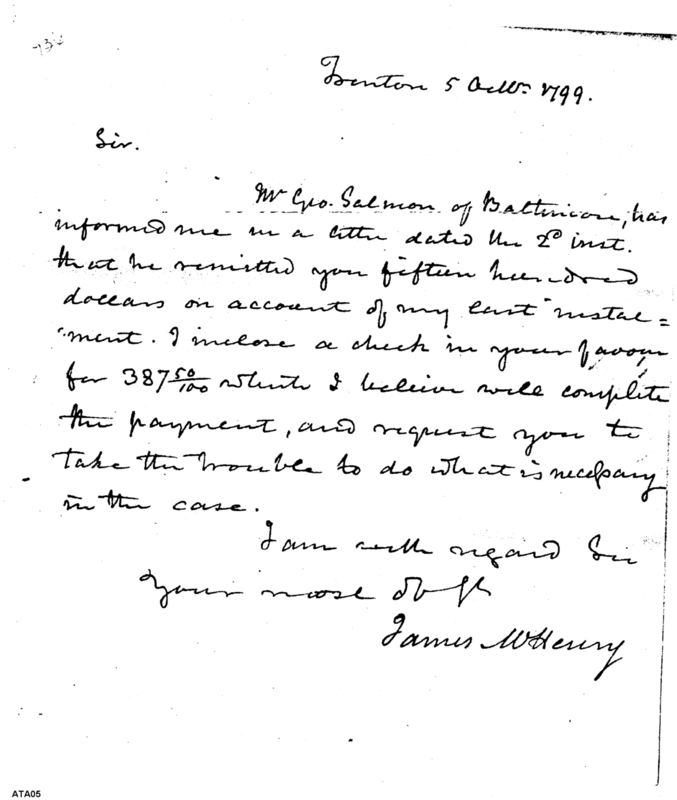 Trenton 5 Octbr. 1799.
Sir.
Mr Geo. Salmon of Baltimore, has
informed me in a letter dated the 2d inst.
that he remitted you fifteen hundred
dollars on account of my last instal=
ment. I inclose a check in your favour
for 387 50/100 which I believe will complete
the payment, and request you to
take the trouble to do what is necessary
in the case.
I am with regard Sir
your most ob st
James McHenry
ATA05